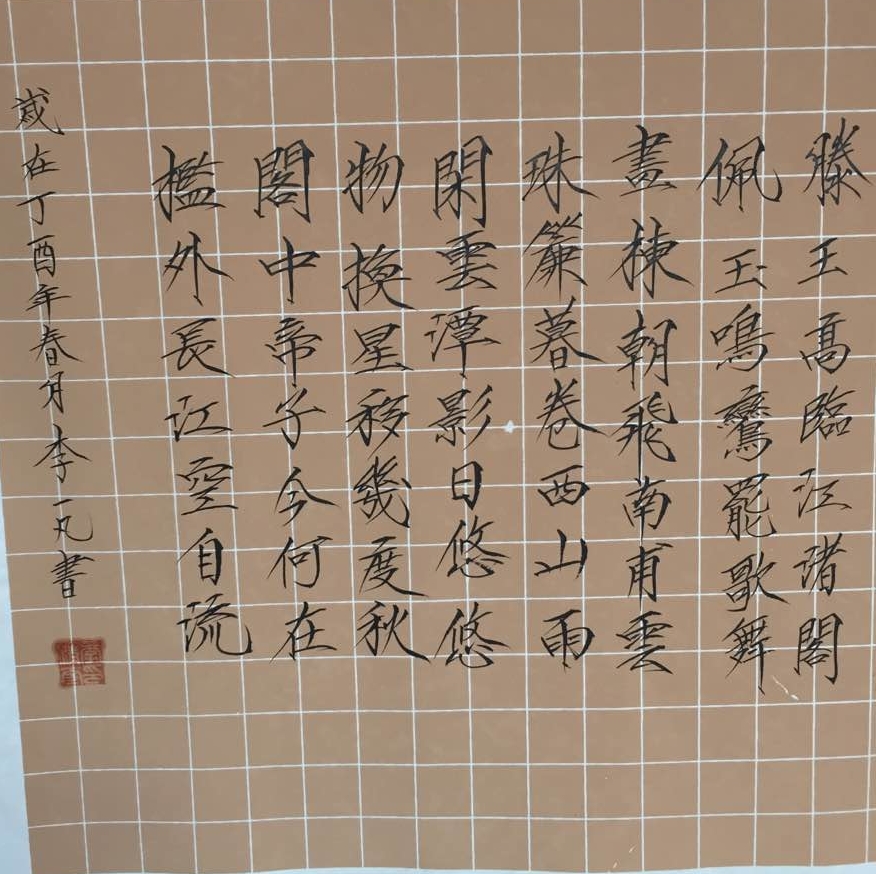 滕王高臨江渚閣
佩玉鳴鸞罷歌舞
畫棟朝飛南甫雲
珠簾暮卷西山雨
閑雲潭影日悠悠
物換星移幾度秋
閣中帝子今何在
檻外長江空自流
歲在丁酉年春月李一凡書